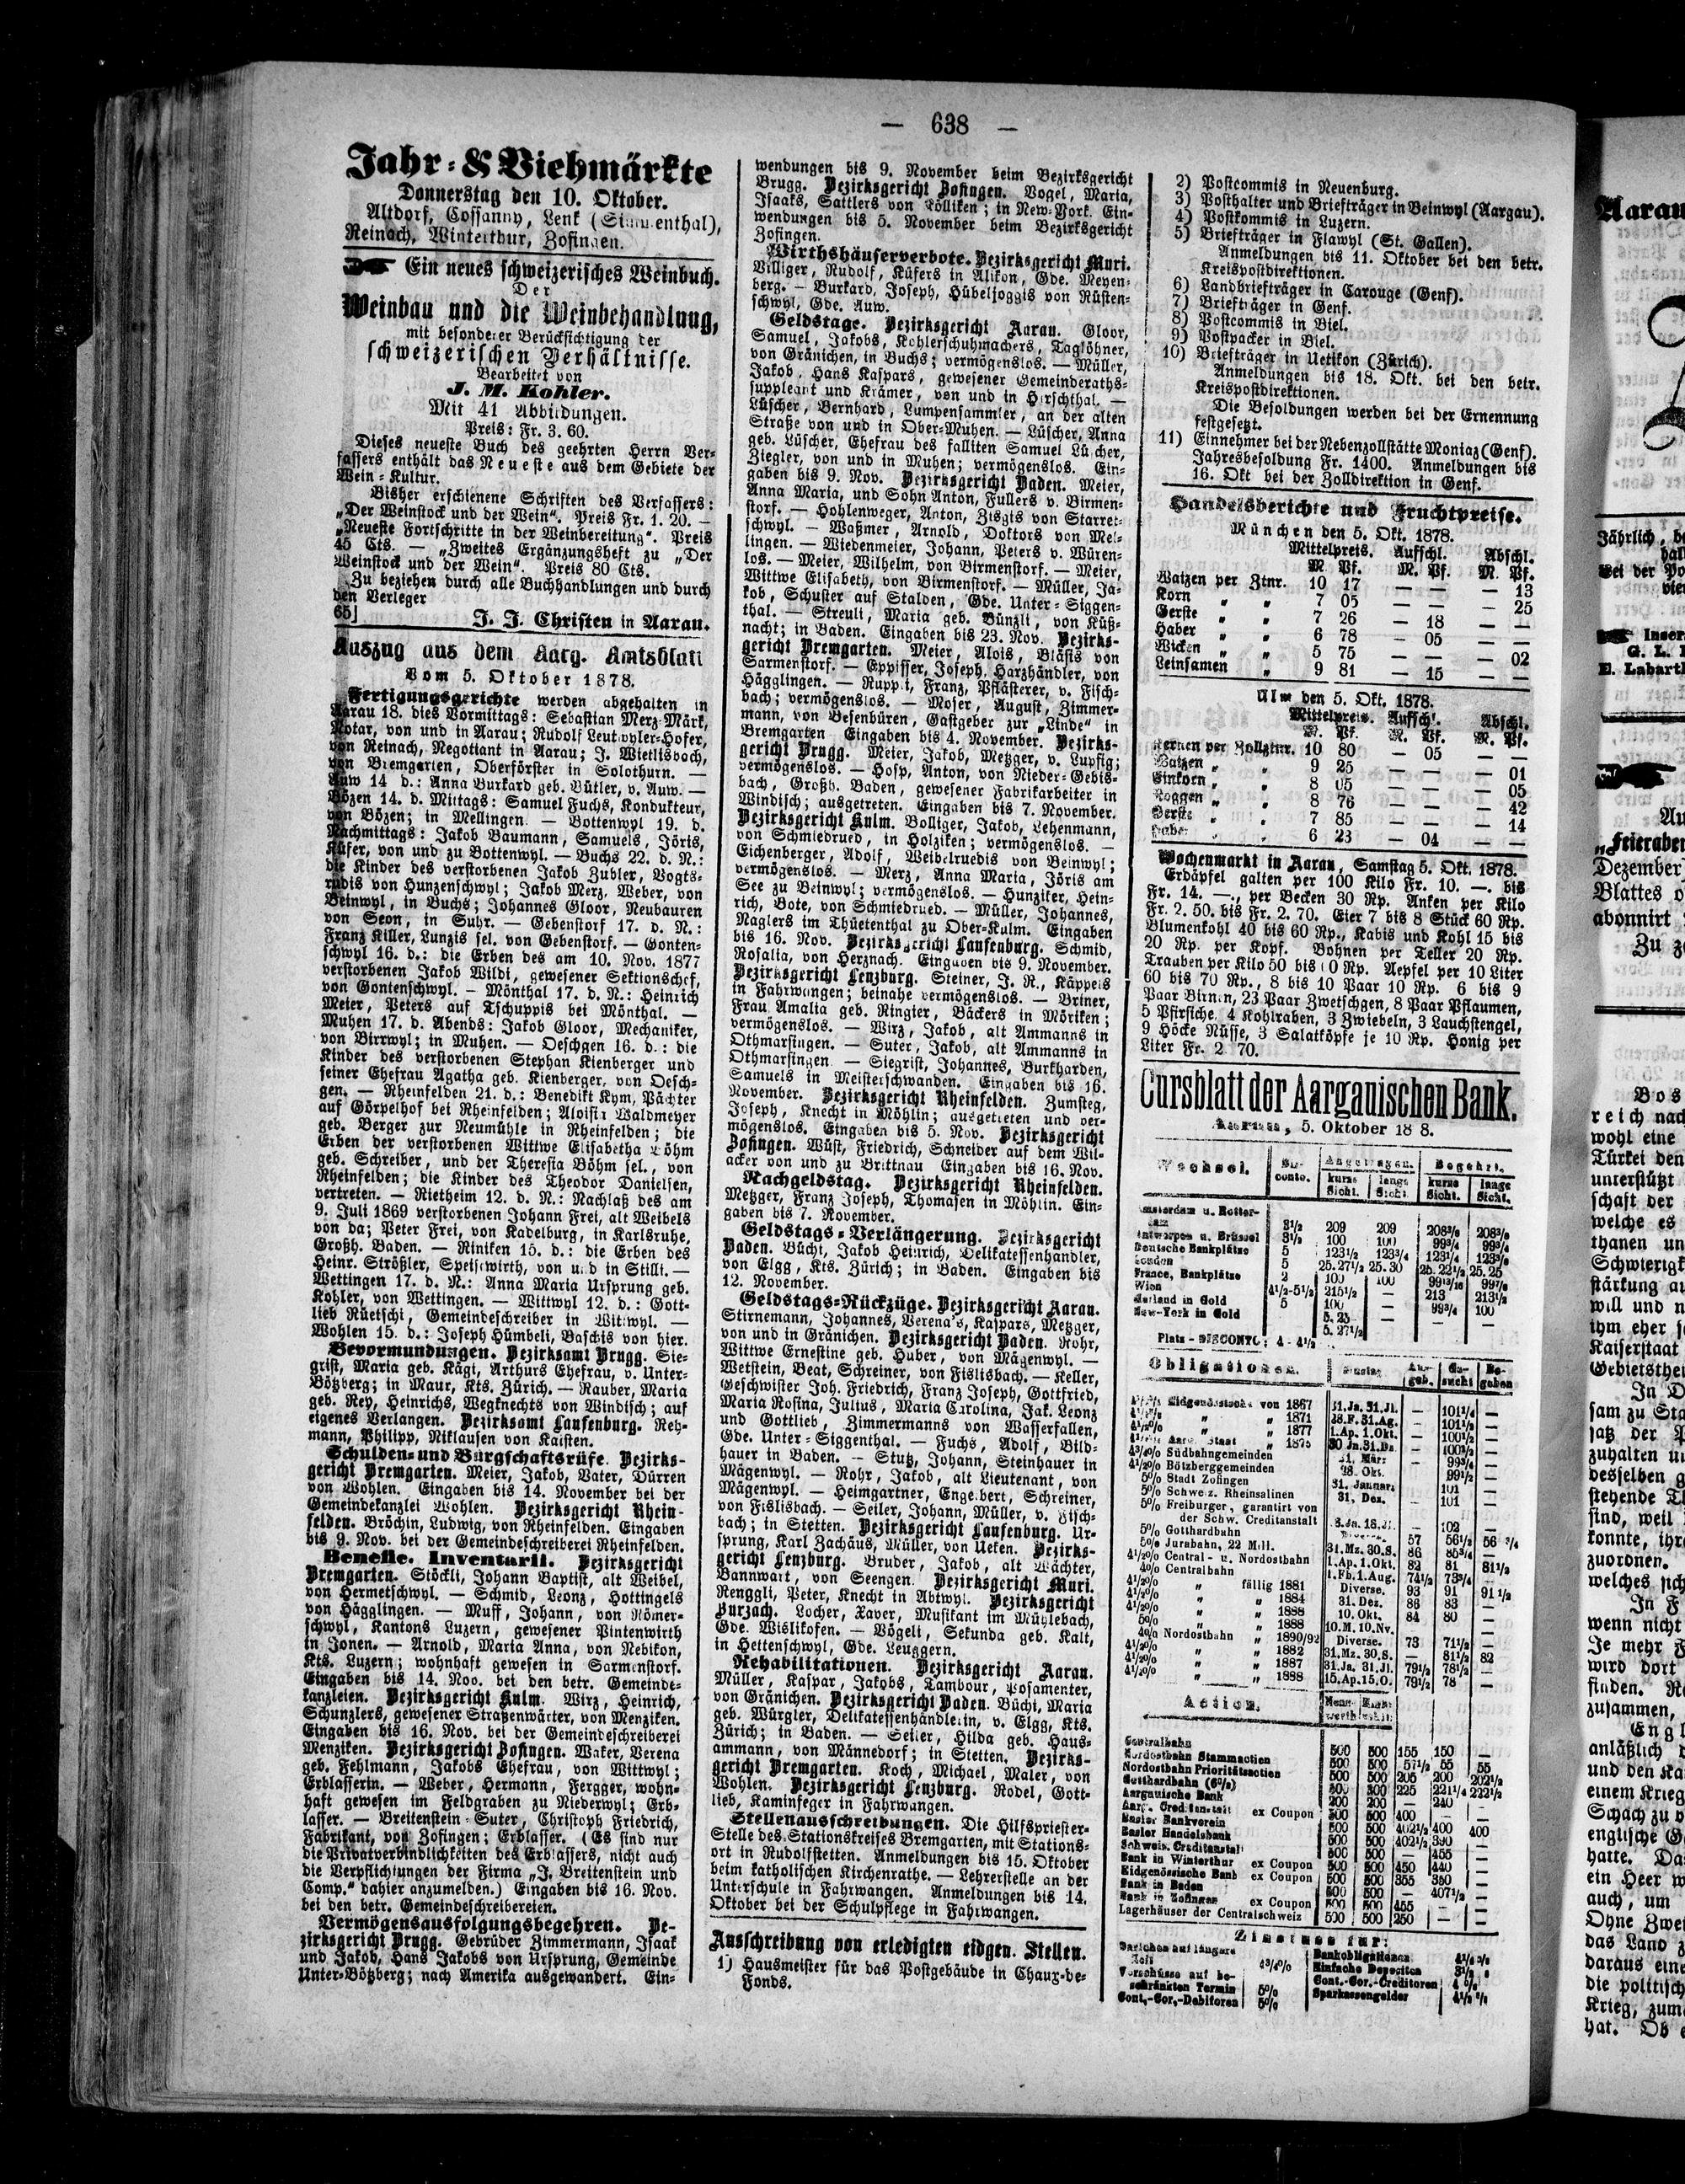 — 638 —
Jahr- & Viehmärkte
Donnerstag den 10. Oktober.
Altdorf, Cossanny, Lenk (Simmenthal),
Reinach, Winterthur, Zofingen.
Ein neues schweizerisches Weinbuch.
Der
Weinbau und die Weinbehandlung,
mit besonderer Berücksichtigung der
schweizerischen Verhältnisse.
Bearbeitet von
J. M. Kohler.
Mit 41 Abbildungen.
Preis: Fr. 3. 60.
Dieses neueste Buch des geehrten Herrn Ver-
fassers enthält das Neueste aus dem Gebiete der
Wein-Kultur.
Bisher erschienene Schriften des Verfassers:
„Der Weinstock und der Wein“. Preis Fr. 1. 20. —
„Neueste Fortschritte in der Weinbereitung“. Preis
45 Cts. — „Zweites Ergänzungsheft zu „Der
Weinstock und der Wein“. Preis 80 Cts.
Zu beziehen durch alle Buchhandlungen und durch
den Verleger
65] J. J. Christen in Aarau.
Auszug aus dem Aarg. Amtsblatt
Vom 5. Oktober 1878.
Fertigungsgerichte werden abgehalten in
Aarau 18. dies Vormittags: Sebastian Merz-Märk,
Notar, von und in Aarau; Rudolf Leutwyler-Hofer,
von Reinach, Negotiant in Aarau; J. Wietlisbach,
von Bremgarten, Oberförster in Solothurn. —
Auw 14 d.: Anna Burkard geb. Bütler, v. Auw. —
Bözen 14. d. Mittags: Samuel Fuchs, Kondukteur,
von Bözen; in Mellingen. — Bottenwyl 19. d.
Nachmittags: Jakob Baumann, Samuels, Jöris,
Küfer, von und zu Bottenwyl. — Buchs 22. d. N.:
die Kinder des verstorbenen Jakob Zubler, Vogts-
rudis von Hunzenschwyl; Jakob Merz, Weber, von
Beinwyl, in Buchs; Johannes Gloor, Neubauren
von Seon, in Suhr. — Gebenstorf 17. d. N.:
Franz Killer, Lunzis sel. von Gebenstorf. — Gonten-
schwyl 16. d.: die Erben des am 10. Nov. 1877
verstorbenen Jakob Wildi, gewesener Sektionschef,
von Gontenschwyl. — Mönthal 17. d. N.: Heinrich
Meier, Peters auf Tschuppis bei Mönthal. —
Muhen 17. d. Abends: Jakob Gloor, Mechaniker,
von Birrwyl; in Muhen. — Oeschgen 16. d.: die
Kinder des verstorbenen Stephan Kienberger und
seiner Ehefrau Agatha geb. Kienberger, von Oesch-
gen. — Rheinfelden 21. d.: Benedikt Kym, Pächter
auf Görpelhof bei Rheinfelden; Aloisia Waldmeyer
geb. Berger zur Neumühle in Rheinfelden; die
Erben der verstorbenen Wittwe Elisabetha Böhm
geb. Schreiber, und der Theresia Böhm sel., von
Rheinfelden; die Kinder des Theodor Danielsen,
vertreten. — Rietheim 12. d. N.: Nachlaß des am
9. Juli 1869 verstorbenen Johann Frei, alt Weibels
von da; Peter Frei, von Kadelburg, in Karlsruhe,
Großh. Baden. — Riniken 15. d.: die Erben des
Heinr. Strößler, Speisewirth, von und in Stilli. —
Wettingen 17. d. N.: Anna Maria Ursprung geb.
Kohler, von Wettingen. — Wittwyl 12. d.: Gott-
lieb Rüetschi, Gemeindeschreiber in Wittwyl. —
Wohlen 15. d.: Joseph Hümbeli, Baschis von hier.
Bevormundungen. Bezirksamt Brugg. Sie-
grist, Maria geb. Kägi, Arthurs Ehefrau, v. Unter-
Bötzberg; in Maur, Kts. Zürich. — Rauber, Maria
geb. Rey, Heinrichs, Wegknechts von Windisch; auf
eigenes Verlangen. Bezirksamt Laufenburg. Reh-
mann, Philipp, Niklausen von Kaisten.
Schulden- und Bürgschaftsrüfe. Bezirks-
gericht Bremgarten. Meier, Jakob, Vater, Dürren
von Wohlen. Eingaben bis 14. November bei der
Gemeindekanzlei Wohlen. Bezirksgericht Rhein-
felden. Bröchin, Ludwig, von Rheinfelden. Eingaben
bis 9. Nov. bei der Gemeindeschreiberei Rheinfelden.
Benefic. Inventarii. Bezirksgericht
Bremgarten. Stöckli, Johann Baptist, alt Weibel,
von Hermetschwyl. — Schmid, Leonz, Hottingels
von Hägglingen. — Muff, Johann, von Römer-
schwyl, Kantons Luzern, gewesener Pintenwirth
in Jonen. — Arnold, Maria Anna, von Nebikon,
Kts. Luzern; wohnhaft gewesen in Sarmenstorf.
Eingaben bis 14. Nov. bei den betr. Gemeinde-
kanzleien. Bezirksgericht Kulm. Wirz, Heinrich,
Schunzlers, gewesener Straßenwärter, von Menziken.
Eingaben bis 16. Nov. bei der Gemeindeschreiberei
Menziken. Bezirksgericht Zofingen. Walter, Verena
geb. Fehlmann, Jakobs Ehefrau, von Wittwyl;
Erblasserin. — Weber, Hermann, Fergger, wohn-
haft gewesen im Feldgraben zu Niederwyl; Erb-
lasser. — Breitenstein-Suter, Christoph Friedrich,
Fabrikant, von Zofingen; Erblasser. (Es sind nur
die Privatverbindlichkeiten des Erblassers, nicht auch
die Verpflichtungen der Firma „J. Breitenstein und
Comp.“ dahier anzumelden.) Eingaben bis 16. Nov.
bei den betr. Gemeindeschreibereien.
Vermögensausfolgungsbegehren. Be-
zirksgericht Brugg. Gebrüder Zimmermann, Isaak
und Jakob, Hans Jakobs von Ursprung, Gemeinde
Unter-Bötzberg; nach Amerika ausgewandert. Ein-
wendungen bis 9. November beim Bezirksgericht
Brugg. Bezirksgericht Zofingen. Vogel, Maria,
Isaaks, Sattlers von Kölliken; in New-York. Ein-
wendungen bis 5. November beim Bezirksgericht
Zofingen.
Wirthshäuserverbote. Bezirksgericht Muri.
Villiger, Rudolf, Küfers in Alikon, Gde. Meyen-
berg. — Burkard, Joseph, Hübeljoggis von Rüsten-
schwyl, Gde. Auw.
Geldstage. Bezirksgericht Aarau. Gloor,
Samuel, Jakobs, Kohlerschuhmachers, Taglöhner,
von Gränichen, in Buchs; vermögenslos. — Müller,
Jakob, Hans Kaspars, gewesener Gemeinderaths-
suppleant und Krämer, von und in Hirschthal. —
Lüscher, Bernhard, Lumpensammler, an der alten
Straße von und in Ober-Muhen. — Lüscher, Anna
geb. Lüscher, Ehefrau des falliten Samuel Lüscher,
Ziegler, von und in Muhen; vermögenslos. Ein-
gaben bis 9. Nov. Bezirksgericht Baden. Meier,
Anna Maria, und Sohn Anton, Fullers v. Birmen-
storf. — Hohlenweger, Anton, Zisgis von Starret-
schwyl. — Waßmer, Arnold, Doktors von Mel-
lingen. — Wiedenmeier, Johann, Peters v. Würen-
los. — Meier, Wilhelm, von Birmenstorf. — Meier,
Wittwe Elisabeth, von Birmenstorf. — Müller, Ja-
kob, Schuster auf Stalden, Gde. Unter-Siggen-
thal. — Streuli, Maria geb. Bünzli, von Küß-
nacht; in Baden. Eingaben bis 23. Nov. Bezirks-
gericht Bremgarten. Meier, Alois, Bläsis von
Sarmenstorf. — Eppisser, Joseph, Harzhändler, von
Hägglingen. — Ruppli, Franz, Pflästerer, v. Fisch-
bach; vermögenslos. — Moser, August, Zimmer-
mann, von Besenbüren, Gastgeber zur „Linde“ in
Bremgarten Eingaben bis 4. November. Bezirks-
gericht Brugg. Meier, Jakob, Metzger, v. Lupfig;
vermögenslos. — Hosp, Anton, von Nieder-Gebis-
bach, Großh. Baden, gewesener Fabrikarbeiter in
Windisch; ausgetreten. Eingaben bis 7. November.
Bezirksgericht Kulm. Bolliger, Jakob, Lehenmann,
von Schmiedrued, in Holziken; vermögenslos. —
Eichenberger, Adolf, Weibelruedis von Beinwyl;
vermögenslos. — Merz, Anna Maria, Jöris am
See zu Beinwyl; vermögenslos. — Hunziker, Hein-
rich, Bote, von Schmiedrued. — Müller, Johannes,
Naglers im Thüetenthal zu Ober-Kulm. Eingaben
bis 16. Nov. Bezirksgericht Laufenburg. Schmid,
Rosalia, von Herznach. Eingaben bis 9. November.
Bezirksgericht Lenzburg. Steiner, J. R., Käppels
in Fahrwangen; beinahe vermögenslos. — Briner,
Frau Amalia geb. Ringier, Bäckers in Möriken;
vermögenslos. — Wirz, Jakob, alt Ammanns in
Othmarsingen. — Suter, Jakob, alt Ammanns in
Othmarsingen — Siegrist, Johannes, Burkharden,
Samuels in Meisterschwanden. Eingaben bis 16.
November. Bezirksgericht Rheinfelden. Zumsteg,
Joseph, Knecht in Möhlin; ausgetreten und ver-
mögenslos. Eingaben bis 5. Nov. Bezirksgericht
Zofingen. Wüst, Friedrich, Schneider auf dem Wil-
acker von und zu Brittnau Eingaben bis 16. Nov.
Nachgeldstag. Bezirksgericht Rheinfelden.
Metzger, Franz Joseph, Thomasen in Möhlin. Ein-
gaben bis 7. November.
Geldstags-Verlängerung. Bezirksgericht
Baden. Büchi, Jakob Heinrich, Delikatessenhandler,
von Elgg, Kts. Zürich; in Baden. Eingaben bis
12. November.
Geldstags-Rückzüge. Bezirksgericht Aarau.
Stirnemann, Johannes, Verena's, Kaspars, Metzger,
von und in Gränichen. Bezirksgericht Baden. Rohr,
Wittwe Ernestine geb. Huber, von Mägenwyl. —
Wetstein, Beat, Schreiner, von Fislisbach. — Keller,
Geschwister Joh. Friedrich, Franz Joseph, Gottfried,
Maria Rosina, Julius, Maria Carolina, Jak. Leonz
und Gottlieb, Zimmermanns von Wasserfallen,
Gde. Unter-Siggenthal. — Fuchs, Adolf, Bild-
hauer in Baden. — Stutz, Johann, Steinhauer in
Mägenwyl. — Rohr, Jakob, alt Lieutenant, von
Mägenwyl. — Heimgartner, Engelbert, Schreiner,
von Fislisbach. — Seiler, Johann, Müller, v. Fisch-
bach; in Stetten. Bezirksgericht Laufenburg. Ur-
sprung, Karl Zachäus, Müller, von Ueken. Bezirks-
gericht Lenzburg. Bruder, Jakob, alt Wächter,
Bannwart, von Seengen. Bezirksgericht Muri.
Renggli, Peter, Knecht in Abtwyl. Bezirksgericht
Zurzach. Locher, Xaver, Musikant im Mühlebach,
Gde. Wislikofen. — Vögeli, Sekunda geb. Kalt,
in Hettenschwyl, Gde. Leuggern.
Rehabilitationen. Bezirksgericht Aarau.
Müller, Kaspar, Jakobs, Tambour, Posamenter,
von Gränichen. Bezirksgericht Baden. Büchi, Maria
geb. Würgler, Delikatessenhändlerin, v. Elgg, Kts.
Zürich; in Baden. — Seiler, Hilda geb. Haus-
ammann, von Männedorf; in Stetten. Bezirks-
gericht Bremgarten. Koch, Michael, Maler, von
Wohlen. Bezirksgericht Lenzburg. Rodel, Gott-
lieb, Kaminfeger in Fahrwangen.
Stellenausschreibungen. Die Hilfspriester-
Stelle des Stationskreises Bremgarten, mit Stations-
ort in Rudolfstetten. Anmeldungen bis 15. Oktober
beim katholischen Kirchenrathe. — Lehrerstelle an der
Unterschule in Fahrwangen. Anmeldungen bis 14.
Oktober bei der Schulpflege in Fahrwangen.
Ausschreibung von erledigten eidgen. Stellen.
1) Hausmeister für das Postgebäude in Chaux-de-
Fonds.
2) Postcommis in Neuenburg.
3) Posthalter und Briefträger in Beinwyl (Aargau).
4) Postkommis in Luzern.
5) Briefträger in Flawyl (St. Gallen).
Anmeldungen bis 11. Oktober bei den betr.
Kreispostdirektionen.
6) Landbriefträger in Carouge (Genf).
7) Briefträger in Genf.
8) Postcommis in Biel.
9) Postpacker in Biel.
10) Briefträger in Uetikon (Zürich).
Anmeldungen bis 18. Okt. bei den betr.
Kreispostdirektionen.
Die Besoldungen werden bei der Ernennung
festgesetzt.
11) Einnehmer bei der Nebenzollstätte Moniaz (Genf).
Jahresbesoldung Fr. 1400. Anmeldungen bis
16. Okt bei der Zolldirektion in Genf.
Handelsberichte und Fruchtpreise.
München den 5. Okt. 1878.
Mittelpreis. Aufschl. Abschl.
M. Pf. M. Pf. M. Pf.
Waizen per Ztnr. 10 17 — — — 13
Korn „ „ 7 05 — — — 25
Gerste „ „ 7 26 — 18 — —
Haber „ „ 6 78 — 05 — —
Wicken „ „ 5 75 — — — 02
Leinsamen „ 9 81 — 15 — —
Ulm den 5. Okt. 1878.
Mittelpreis. Aufschl. Abschl.
M. Pf. M. Pf. M. Pf.
Kernen per Zollztnr. 10 80 — 05 — —
Waizen „ „ 9 25 — — — 01
Einkorn „ „ 8 05 — — — 05
Roggen „ „ 8 76 — — — 42
Gerste „ „ 7 85 — — — 14
Haber „ „ 6 23 — 04 — —
Wochenmarkt in Aarau, Samstag 5. Okt. 1878.
Erdäpfel galten per 100 Kilo Fr. 10. —. bis
Fr. 14. —., per Becken 30 Rp. Anken per Kilo
Fr. 2. 50. bis Fr. 2. 70. Eier 7 bis 8 Stück 60 Rp.
Blumenkohl 40 bis 60 Rp., Kabis und Kohl 15 bis
20 Rp. per Kopf. Bohnen per Teller 20 Rp.
Trauben per Kilo 50 bis 0 Rp. Aepfel per 10 Liter
60 bis 70 Rp., 8 bis 10 Paar 10 Rp. 6 bis 9
Paar Birnen, 23 Paar Zwetschgen, 8 Paar Pflaumen,
5 Pfirsiche, 4 Kohlraben, 3 Zwiebeln, 3 Lauchstengel,
9 Höcke Nüsse, 3 Salatköpfe je 10 Rp. Honig per
Liter Fr. 2 70.
Cursblatt der Aargauischen Bank.
Aarau, 5. Oktober 18 8.
Wechsel. Dis-conto. Angetragen. Begehrt.
kurze Sicht. lange Sicht. kurze Sicht. lange Sicht.
Amsterdam u. Rotter-
dam 3½ 209 209 208⅜ 208⅜
Antwerpen u. Brüssel 3½ 100 100 99¾ 99¾
Deutsche Bankplätze 5 123½ 123¾ 123¼
London 5 25.27½ 25.30 25.22½ 25.25
France, Bankplätze 2 100 100 99 13/16 99⅞
Wien 4½-5½ 215½ — 213 213½
Mailand in Gold 5 100 — 99¾ 100
New-York in Gold 5. 25 — — —
5. 27½
Platz-DISCONTO: 4 - 4½
Obligationen. Ange-geb. Ge-sucht Be-geben
Eidgenössische von 1867 31.Ja. 31.Jl. — 101¼ —
„ „ 1871 28.F. 31.Ag. — 101½ —
„ „ 1877 1.Ap. 1.Okt. — 100½ —
Aarg. Staat „ 1875 30 Jn. 31.Dz. — 100½ —
4¾% Südbahngemeinden 31. März — 99¾ —
4½% Bötzberggemeinden 28. Okt. 99½ —
5% Stadt Zofingen 31. Januar 101 —
5% Schweiz. Rheinsalinen 31. Dez. — 101 —
5% Freiburger, garantirt von
der Schw. Creditanstalt — 102 —
5% Gotthardbahn 57 56½ 56 ¾
5% Jurabahn, 22 Mill. 31.Mz. 30.S. 86 85¾ —
4½% Central- u. Nordostbahn 1.Ap. 1.Okt. 82 81 81½
4% Centralbahn 1.Fb. 1.Aug. 74½ 73¾ —
4½% „ fällig 1881 Diverse. 93 91 91½
4½% „ „ 1884 31. Dez. 86 83 —
4½% „ „ 1888 10. Okt. 84 80 —
5% „ „ 1888 10.M. 10.Nv. —
4% Nordostbahn „ 1890/92 Diverse. 73 71½ —
4½% „ „ 1882 31.Mz. 30.S. — 81½ 82
4½% „ „ 1887 31.Ja. 31.Jl. 79½ 78½ —
4½% „ „ 1888 15.Ap. 15.O. 79½ 78 —
Actien.
Centralbahn 500 500 155 150 —
Nordostbahn Stammactien 500 500 57½ 55 55
Nordostbahn Prioritätsactien 500 500 205 200 202½
Gotthardbahn (6%) 500 300 225 221¼ 222½
Aargauische Bank 200 200 — 240 —
Aarg. Creditanstalt ex Coupon 500 500 400 — —
Basler Bankverein 500 500 402½ 400 400
Basler Handelsbank 500 500 402½ 390 —
Schweiz. Creditanstalt 500 500 — 455 —
Bank in Winterthur ex Coupon 500 500 450 440 —
Eidgenössische Bank ex Coupon 500 500 355 350 —
Bank in Baden 500 500 — 407½ —
Bank in Zofingen ex Coupon 500 500 455 — —
Lagerhäuser der Centralschweiz 500 500 250 — —
Zinsfuss für:
Darlehen auf längere
Zeit 4¾%
Vorschüsse auf be-
schränkten Termin 5%
Cont.-Cor.-Debitoren 5%
Bankobligationen
Einfache Depositen
Cont.-Cor.-Creditoren
Sparkassengelder
Aarau
Jährlich, be
Bei der Po
vier
Inser
G. L.
E. Labart
Au
„Feieraben
Dezember
Blattes o
abonnirt
Zu z
Bos
reich nach
wohl eine
Türkei den
unterstützt
schaft der
welche es
thanen un
Schwierigk
stärkung au
will und n
ihm eher s
Kaiserstaat
Gebietsthei
In D
sam zu Sta
satz der P
zuhalten un
desselben g
stehende Th
sind, weil
konnte, ihr
zuordnen.
welches sich
In F
wenn nicht
Je mehr F
wird dort
finden. Re
zusammen,
Engl
anläßlich d
und den Ka
einem Krieg
Schach zu v
englische G
hatte. Da
ein Heer w
auch, um
Ohne Zwei
das Land z
daraus eine
die politisch
Krieg, zum
hat. Ob e